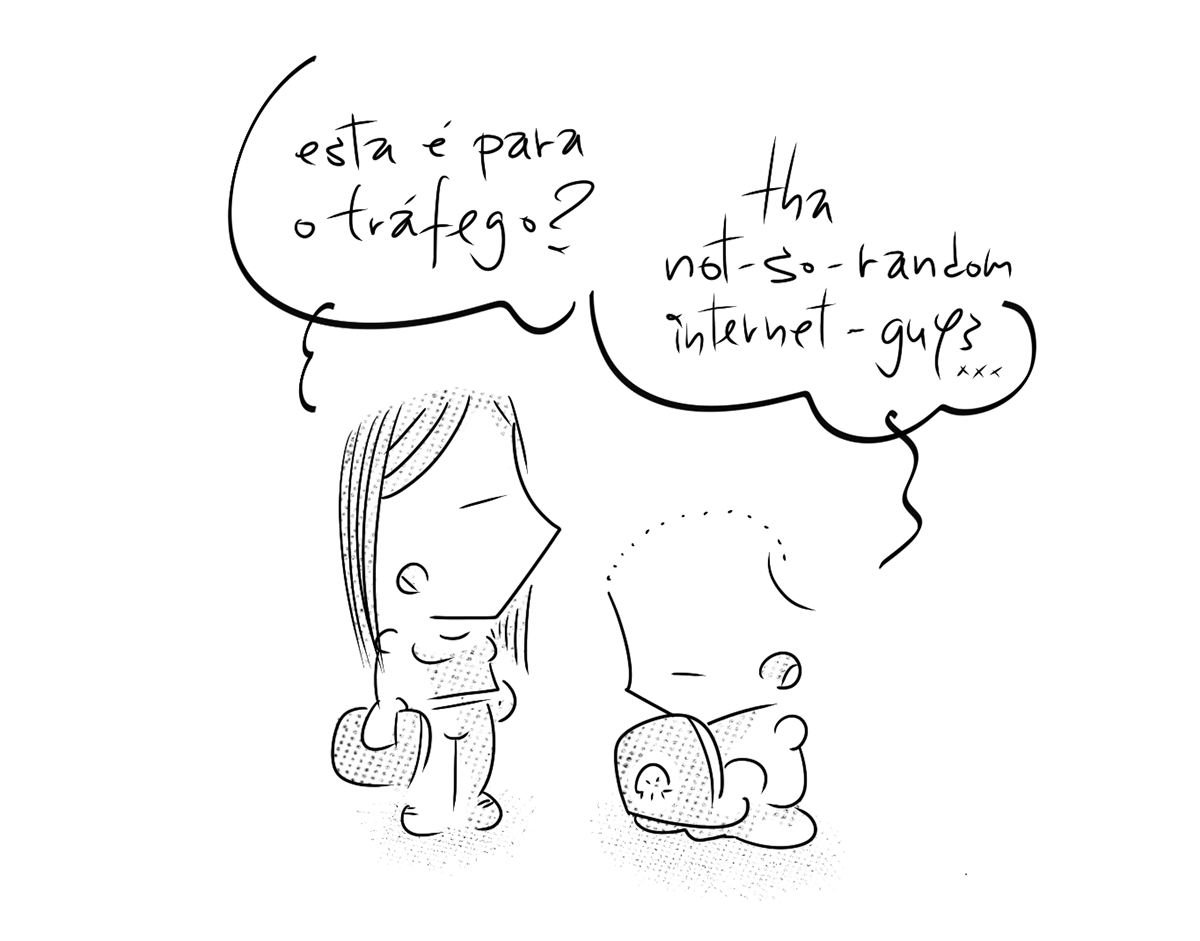 esta é para
o tráfego?
tha
not-so-random
internet-guyz...